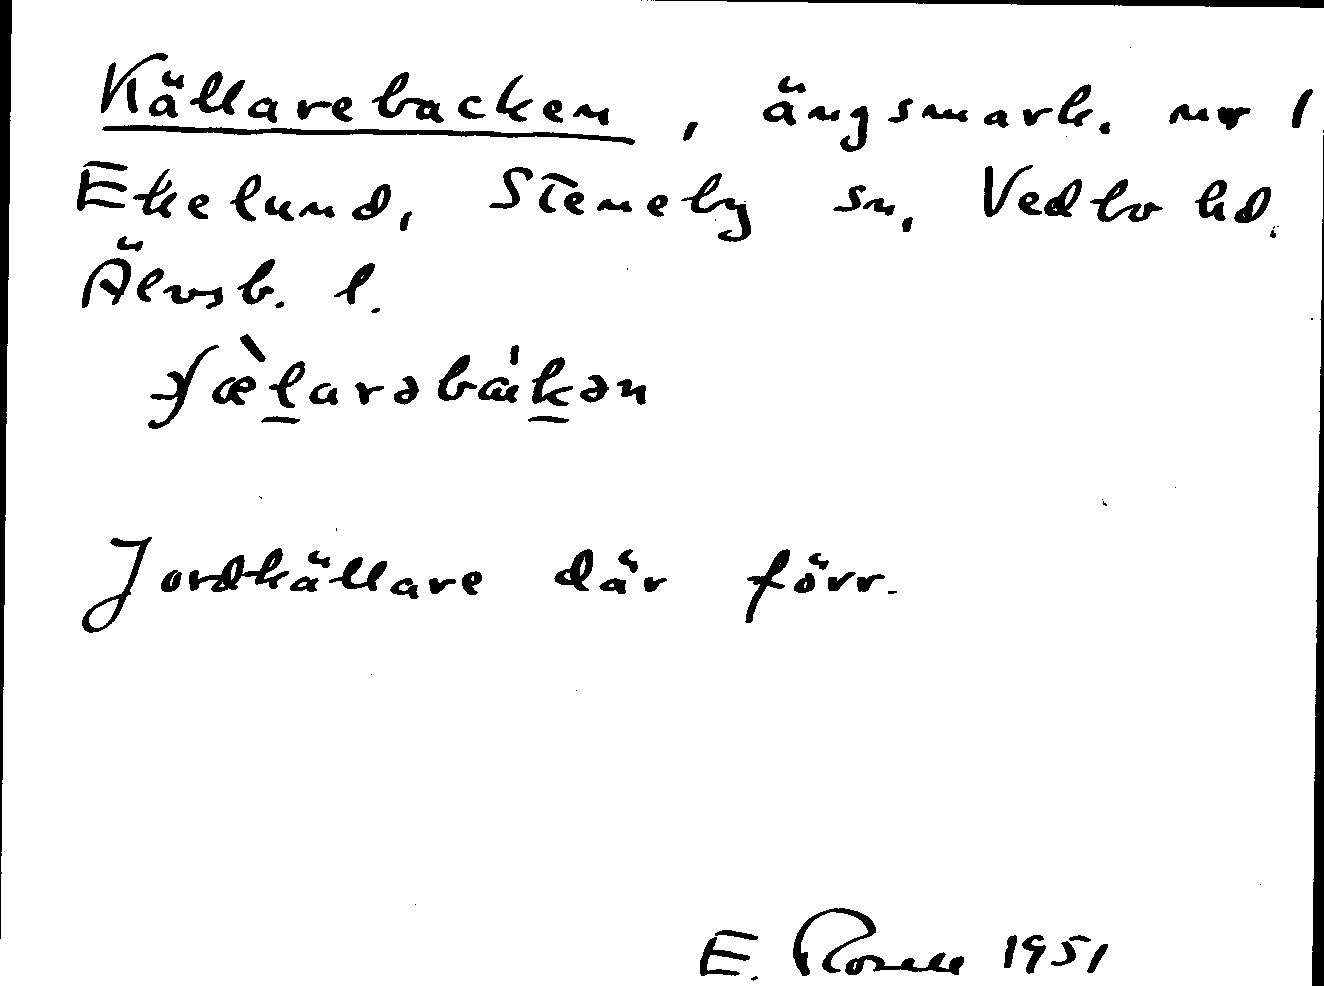 Källarebacken, ängsmark. nr 1
Ekelund, Steneby sn, Vedbo hd.
Älvsb. l.
Jordkällare där förr.
E. Rosell 1951